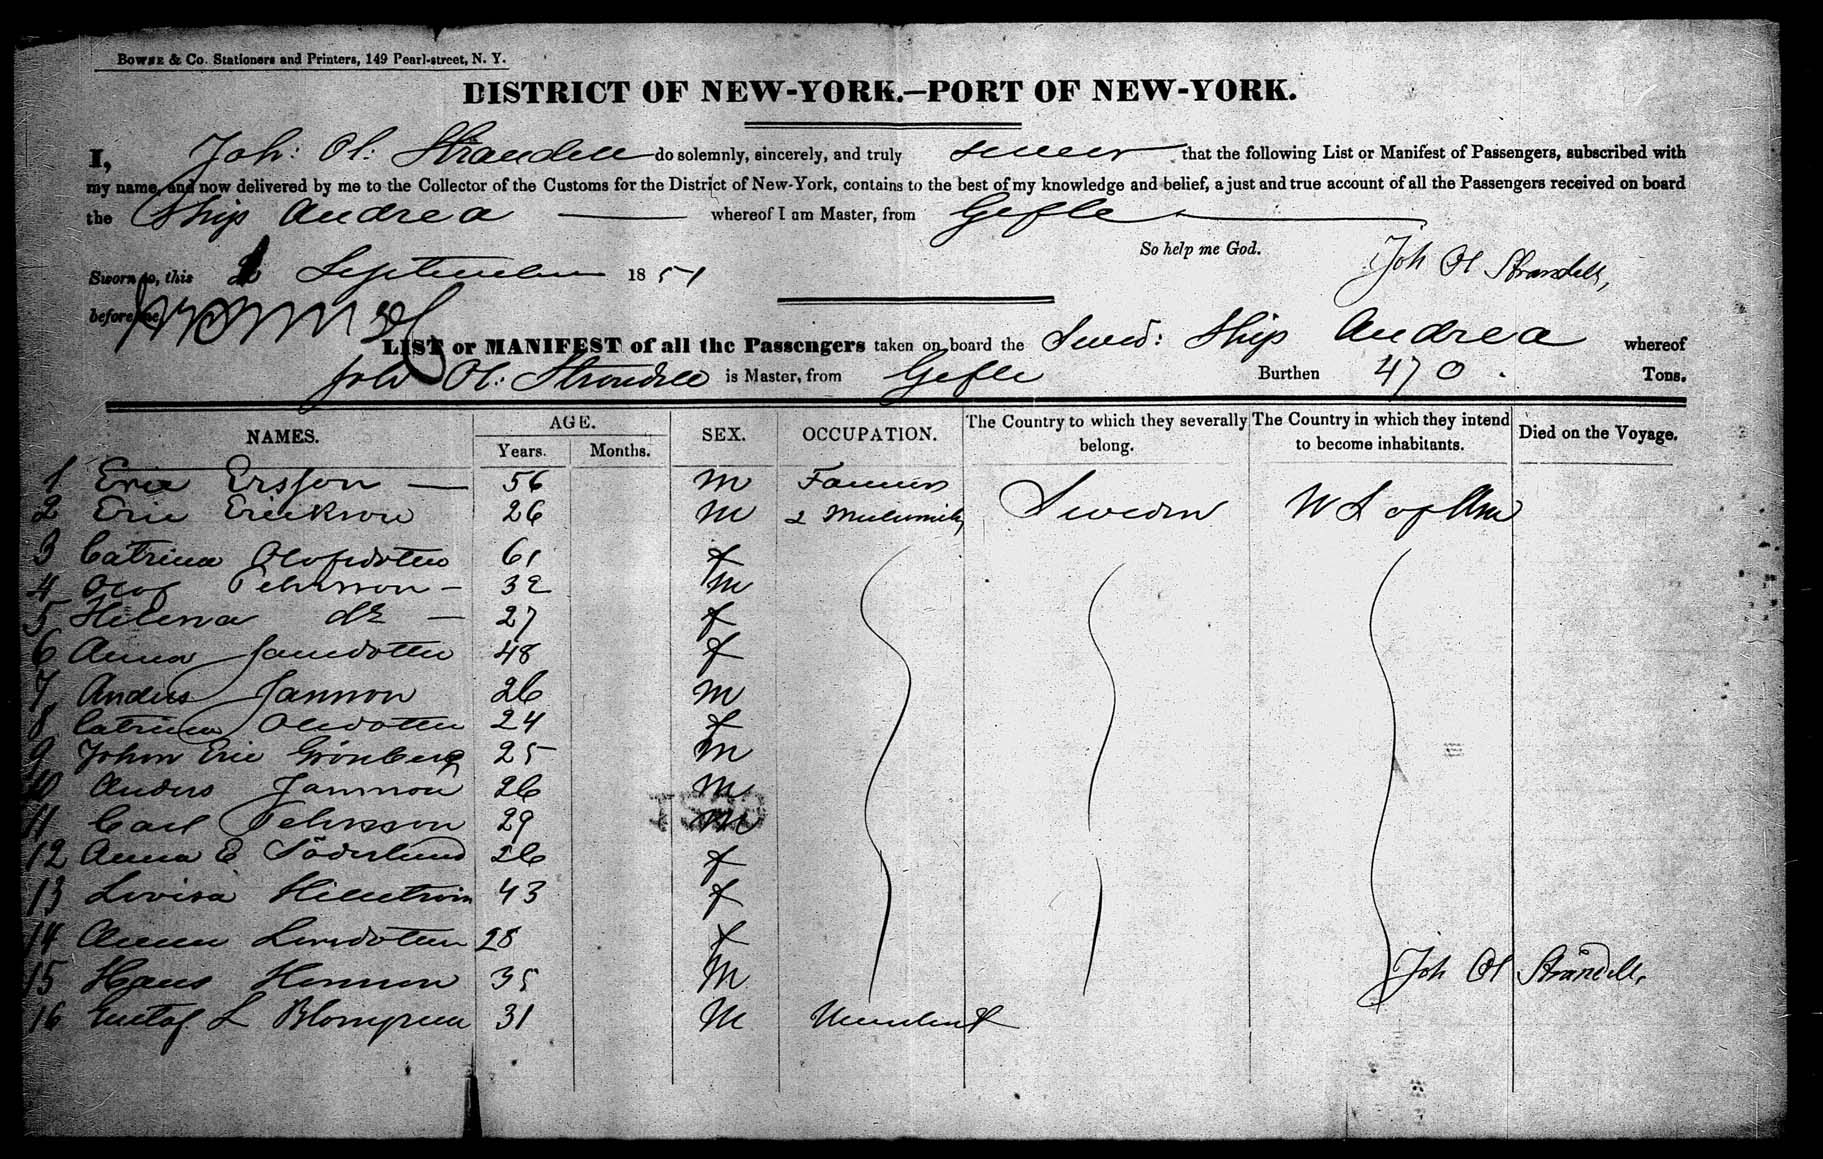 BOWNE & Co. Stationers and Printers, 149 Pearl-street, N. Y.
DISTRICT OF NEW-YORK.—PORT OF NEW-YORK.
I, Joh: Ol: Strandell do solemnly, sincerely, and truly swear that the following List or Manifest of Passengers, subscribed with
my name, and now delivered by me to the Collector of the Customs for the District of New-York, contains to the best of my knowledge and belief, a just and true account of all the Passengers received on board
the Ship Andrea — whereof I am Master, from Gefle
So help me God.
Sworn to, this 2 September 1851 Joh Ol Strandell,
before me
LIST or MANIFEST of all the Passengers taken on board the Swed: Ship Andrea whereof
Joh Ol: Strandell is Master, from Gefle Burthen 470 . Tons.
NAMES. AGE. Years. Months. SEX. OCCUPATION. The Country to which they severally belong. The Country in which they intend to become inhabitants. Died on the Voyage.
1 Eric Ersson — 56 M Farmers
2 Eric Erickson 26 M & Sweden U S of Am
3 Catrina Olofsdotter 61 f
4 Olof Pehrsson – 32 M
5 Helena do — 27 f
6 Anna Jansdotter 48 f
7 Anders Jansson 26 M
8 Catrina Olsdotter 24 f
9 John Eric Grönberg 25 M
10 Anders Jansson 26 M
11 Carl Pehrsson 29 M
12 Anna E Söderlund 26 f
13 Lovisa Hillström 43 f
14 Anna Larsdotter 28 f
Joh Ol Strandell,
15 Hans Hansson 35 M
16 Gustaf L Blomgren 31 M